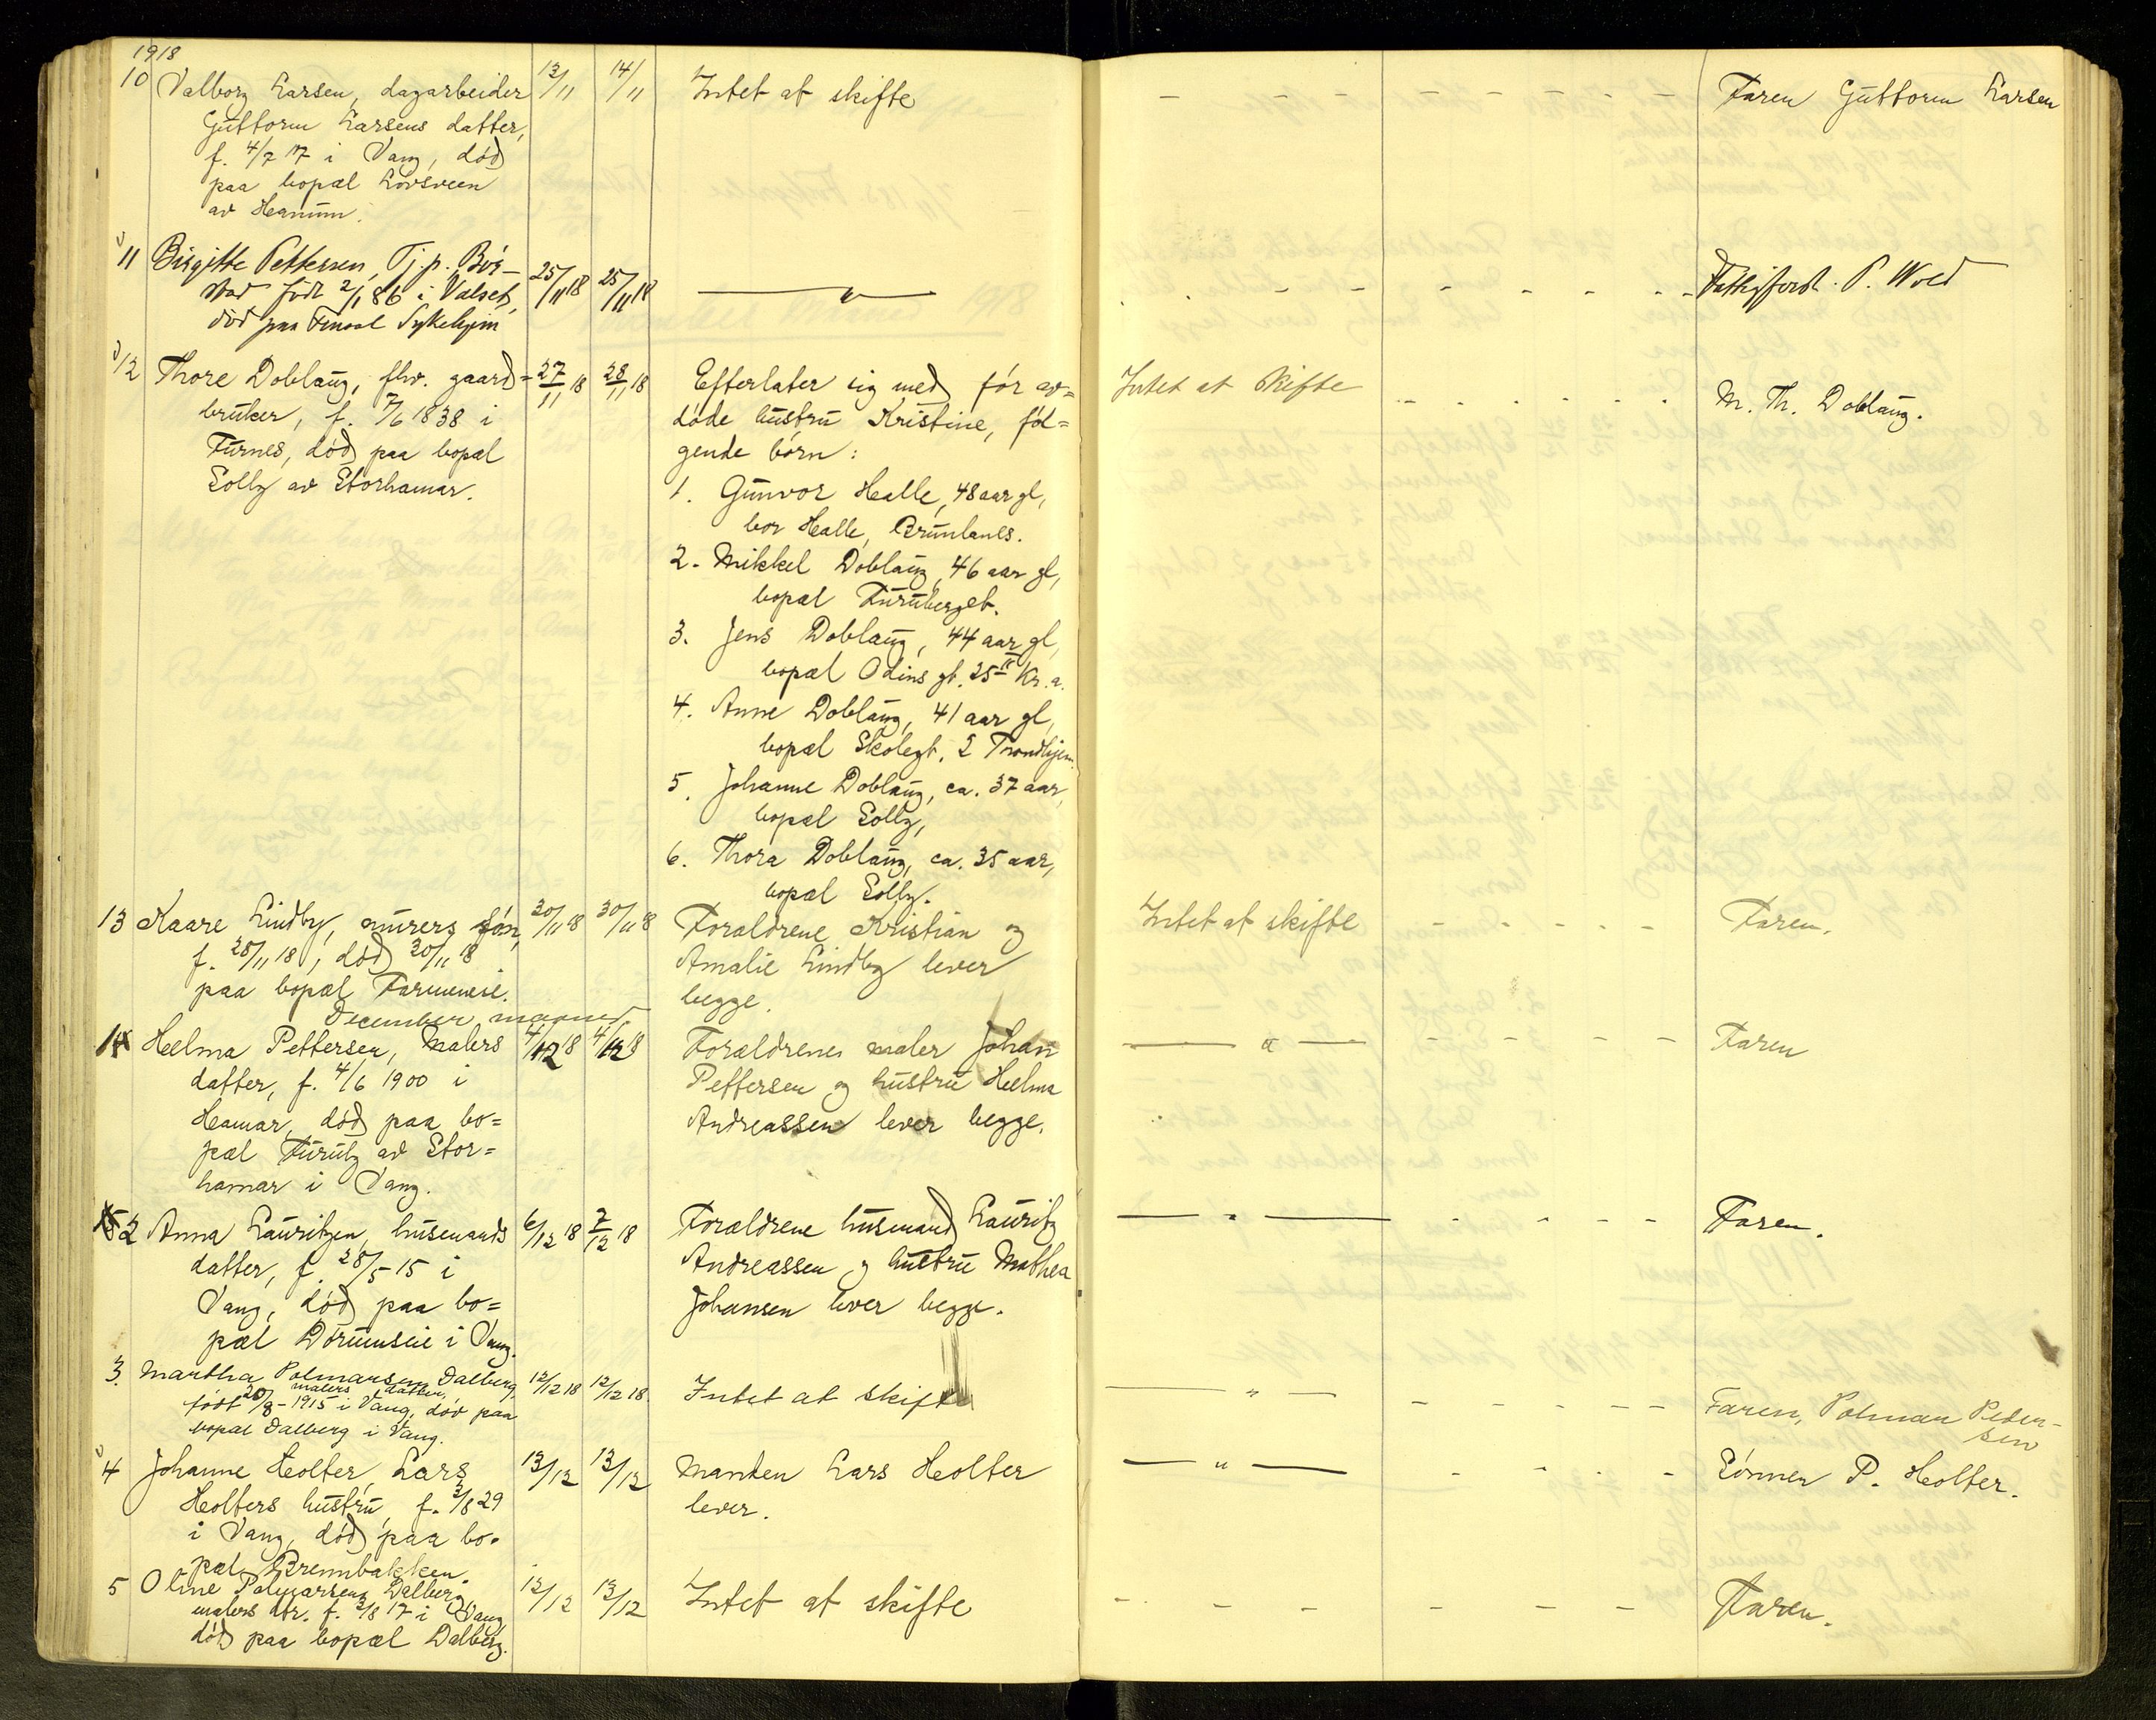 1918
10 Valborg Larsen, dagarbeider 13/11 14/11 Intet at skifte - - - - - - - Faren Guttorm Larsen
Guttorm Larsens datter,
f. 4/7 17 i Vang, død
paa bopæl Lovsveen
av Hanum.
11 Birgitte Pettersen, Tj.p. Bør- 25/11 18 25/11 18 — " — - - - - - - P. Wold
stad født 2/1 86 i Valset,
død paa Finsal Sykehjem
12 Thore Doblaug, fhv. gaard= 27/11 18 28/11 18 Efterlater sig med før av= Intet at skifte - - - - - M. Th. Doblaug.
bruker, f. 7/6 1838 i døde hustru Kristine, føl=
Furnes, død paa bopæl gende børn:
Solly av Storhamar. 1. Gunvor Halle, 48 aar gl,
bor Halle, Brunlanes.
2. Mikkel Doblaug, 46 aar gl,
bopæl Furuberget.
3. Jens Doblaug, 44 aar gl,
bopæl Odins gt. 25 II Kr.a.
4. Anne Doblaug, 41 aar gl,
bopæl Skolegt. 2 Trondhjem.
5. Johanne Doblaug, ca. 37 aar,
bopæl Solly,
6. Thora Doblaug, ca. 35 aar,
bopæl Solly.
13 Kaare Lindby, murers søn, 30/11 18 30/11 18 Forældrene Kristian og Intet at skifte - - - - - Faren.
f. 28/11 18, død 30/11 18 Amalie Lindby lever
paa bopæl begge.
December maaned
1 Helma Pettersen, Malers 4/12 18 4/12 18 Forældrene maler Johan — " — - - - - Faren
datter, f. 4/6 1900 i Pettersen og hustru Helma
Hamar, død paa bo= Andreassen lever begge.
pæl Furuly av Stor=
hamar i Vang.
2 Anna Lauritzen, husmands 6/12 18 7/12 18 Forældrene husmand Lauritz — " — - - - - Faren.
datter, f. 28/5 - 15 i Andreassen og hustru Mathea
Vang, død paa bo= Johansen lever begge.
pæl Dørumseie i Vang.
3. Martha Polmarsen Dalberg, 12/12 18 12/12 18. Intet at skifte — " — - - - - - Faren, Polmar Peder-
malers datter, sen
født 20/8 - 1915 i Vang, død paa
bopæl Dalberg i Vang.
4 Johanne Holter, Lars 13/12 13/12 Manden Lars Holter — " — - - - - Sønnen P. Holter.
Holters hustru, f. 3/8 29 lever.
i Vang, død paa bo-
pæl Brennbakken.
5 Oline Polmarsen Dalberg, 12/12 13/12 Intet at skifte - - - - - - - Faren.
malers dtr. f. 2/8 17 i Vang
død paa bopæl Dalberg.